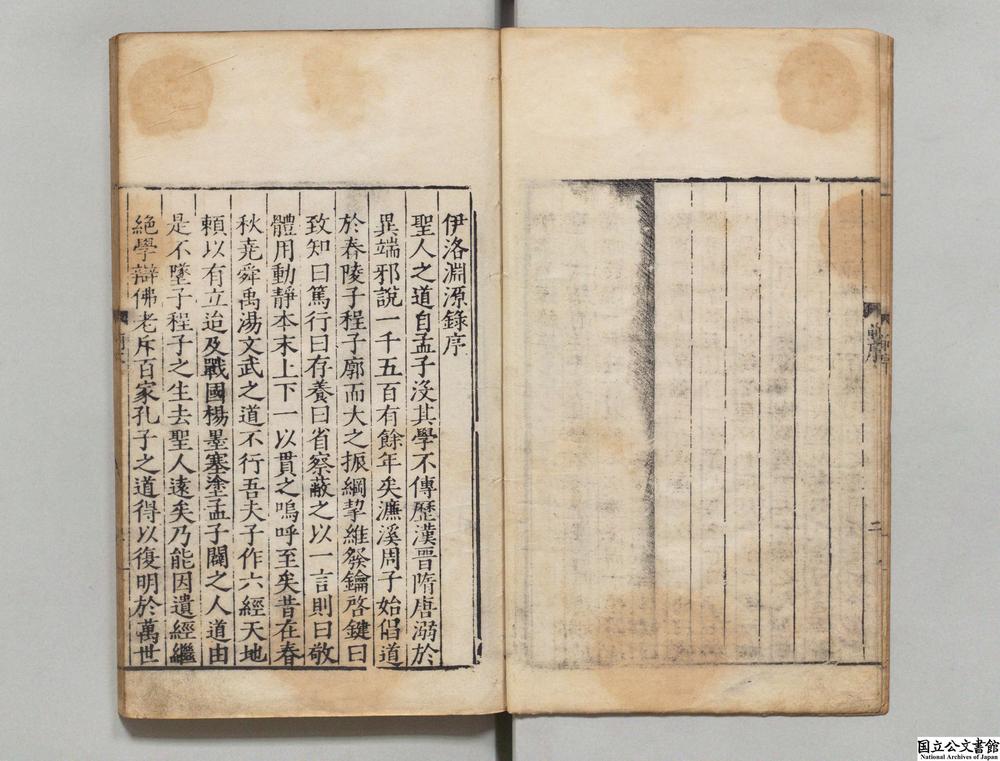 伊洛淵源錄序
聖人之道自孟子沒其學不傳歷漢晉隋唐溺於
異端邪說一千五百有餘年矣濂溪周子始倡道
於舂陵子程子廓而大之振綱挈維發鑰啓鍵曰
致知曰篤行曰存養曰省察蔽之以一言則曰敬
體用動靜本末上下一以貫之嗚呼至矣昔在春
秋堯舜禹湯文武之道不行吾夫子作六經天地
頼以有立迨及戰國楊墨塞塗孟子闢之人道由
是不墜子程子之生去聖人遠矣乃能因遺經繼
絶學辯佛老斥百家孔子之道得以復明於萬世
二
国立公文書館
National Archives of Japan